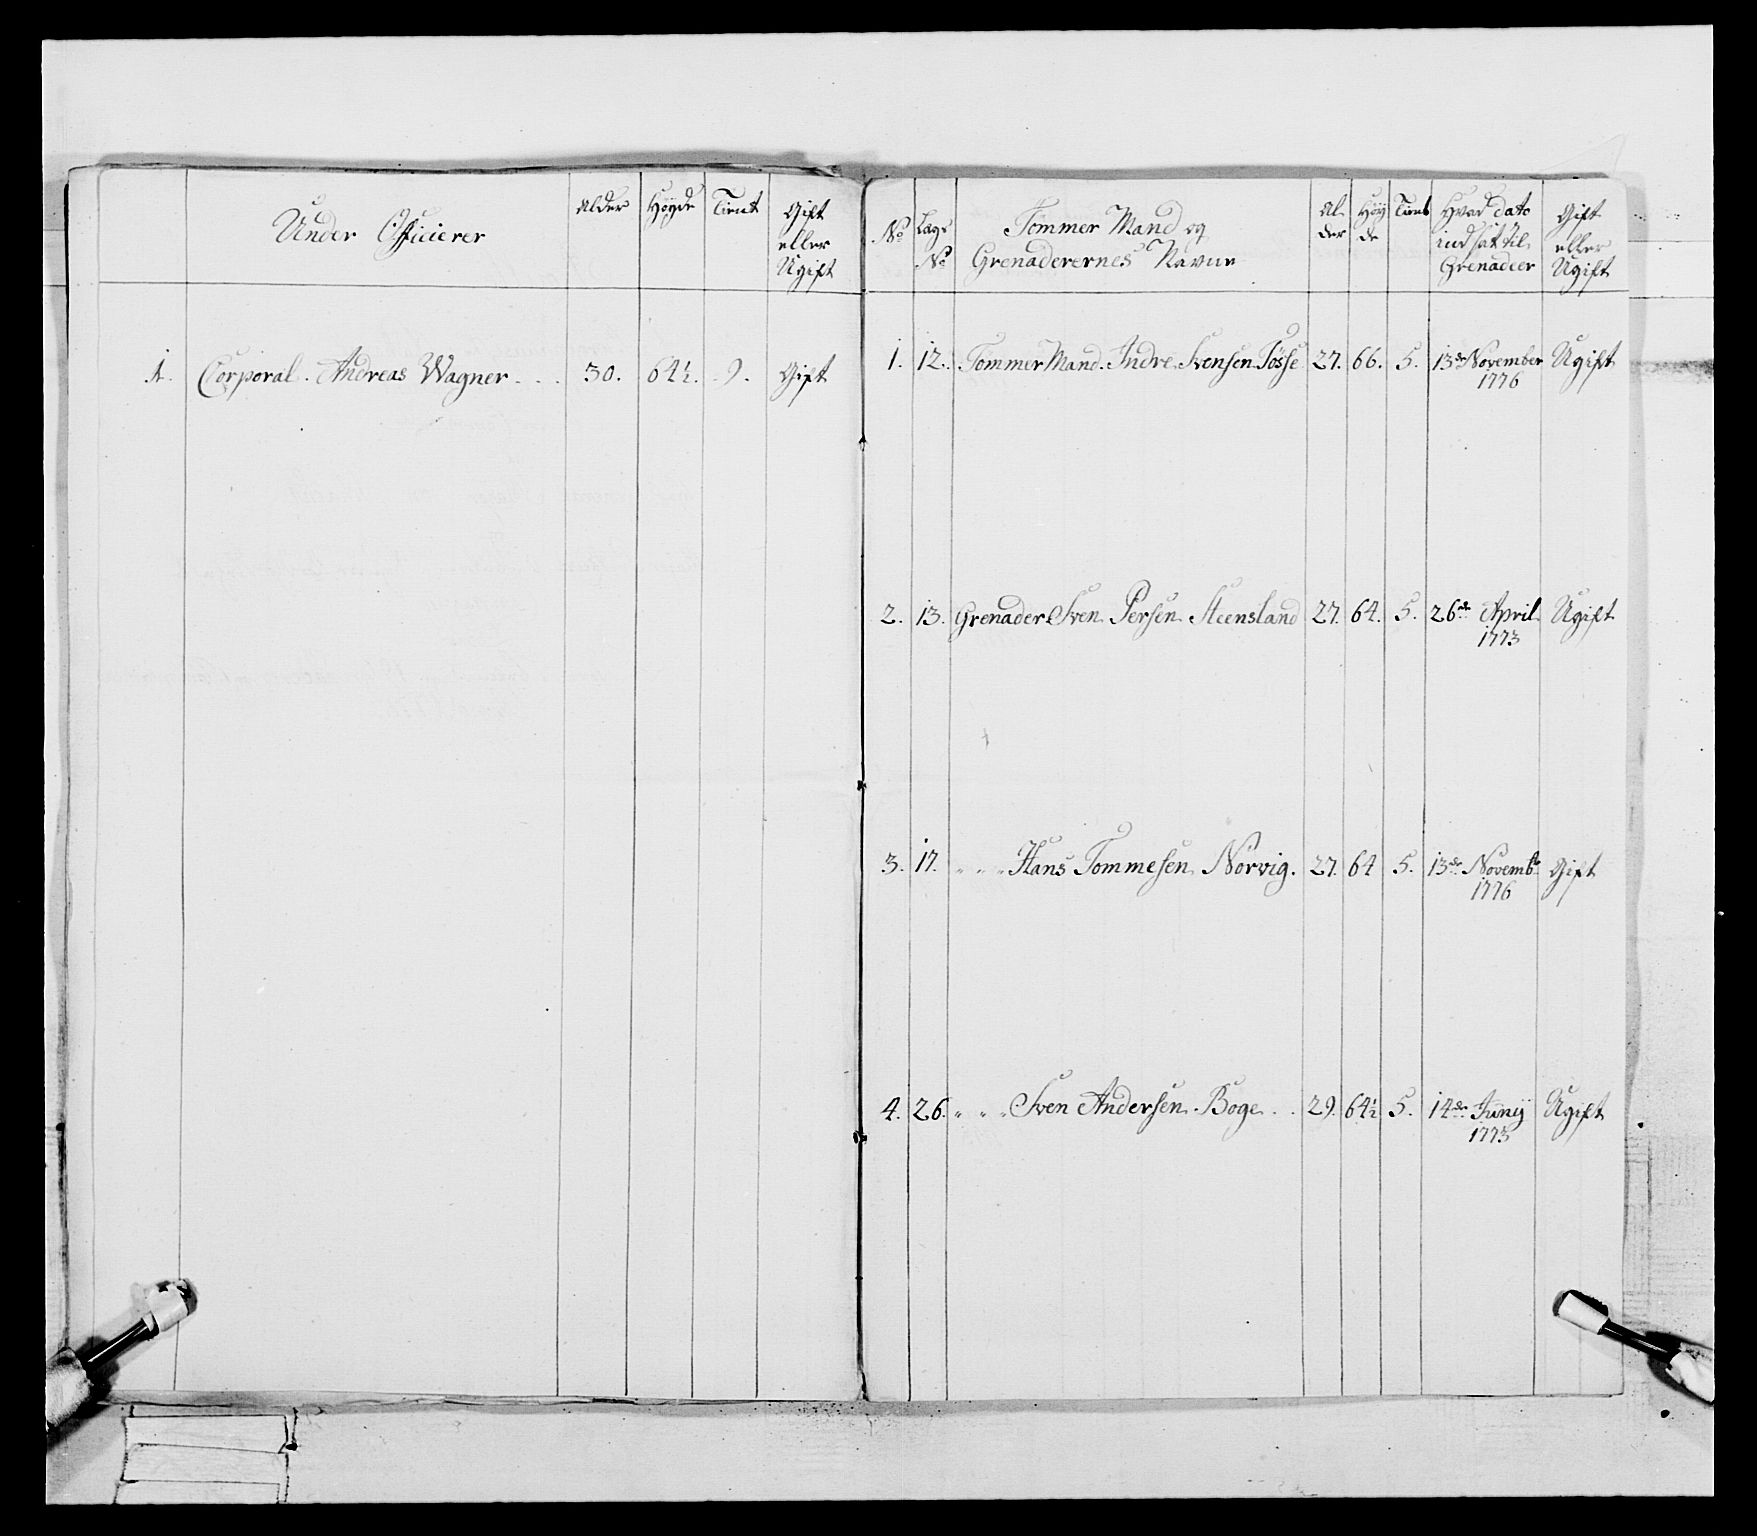 Under Officierer
Alder
Höyde
Tient
Gift
eller
Ugift
1. Corporal. Andreas Wagner . . . 30. 64½. 9. Gift
No
Lags
No
Tömmer Mand og
Grenaderernes Navne
Al
der
Höy
de
Tient
Hvad dato
indsat til
Grenadeer
Gift
eller
Ugift
1. 12. Tömmer Mand. Andre Svensen Tösse 27. 66. 5. 13de November Ugift
1776
2. 13. Grenader Sven Persen Steensland 27. 64. 5. 26de April Ugift
1773
3. 17. " " " Hans Tommesen Nörvig. 27. 64 5. 13de Novembr Gift
1776
4. 26. " " " Sven Andersen Böge . . 29. 64½ 5. 14de Junij Ugift
1773